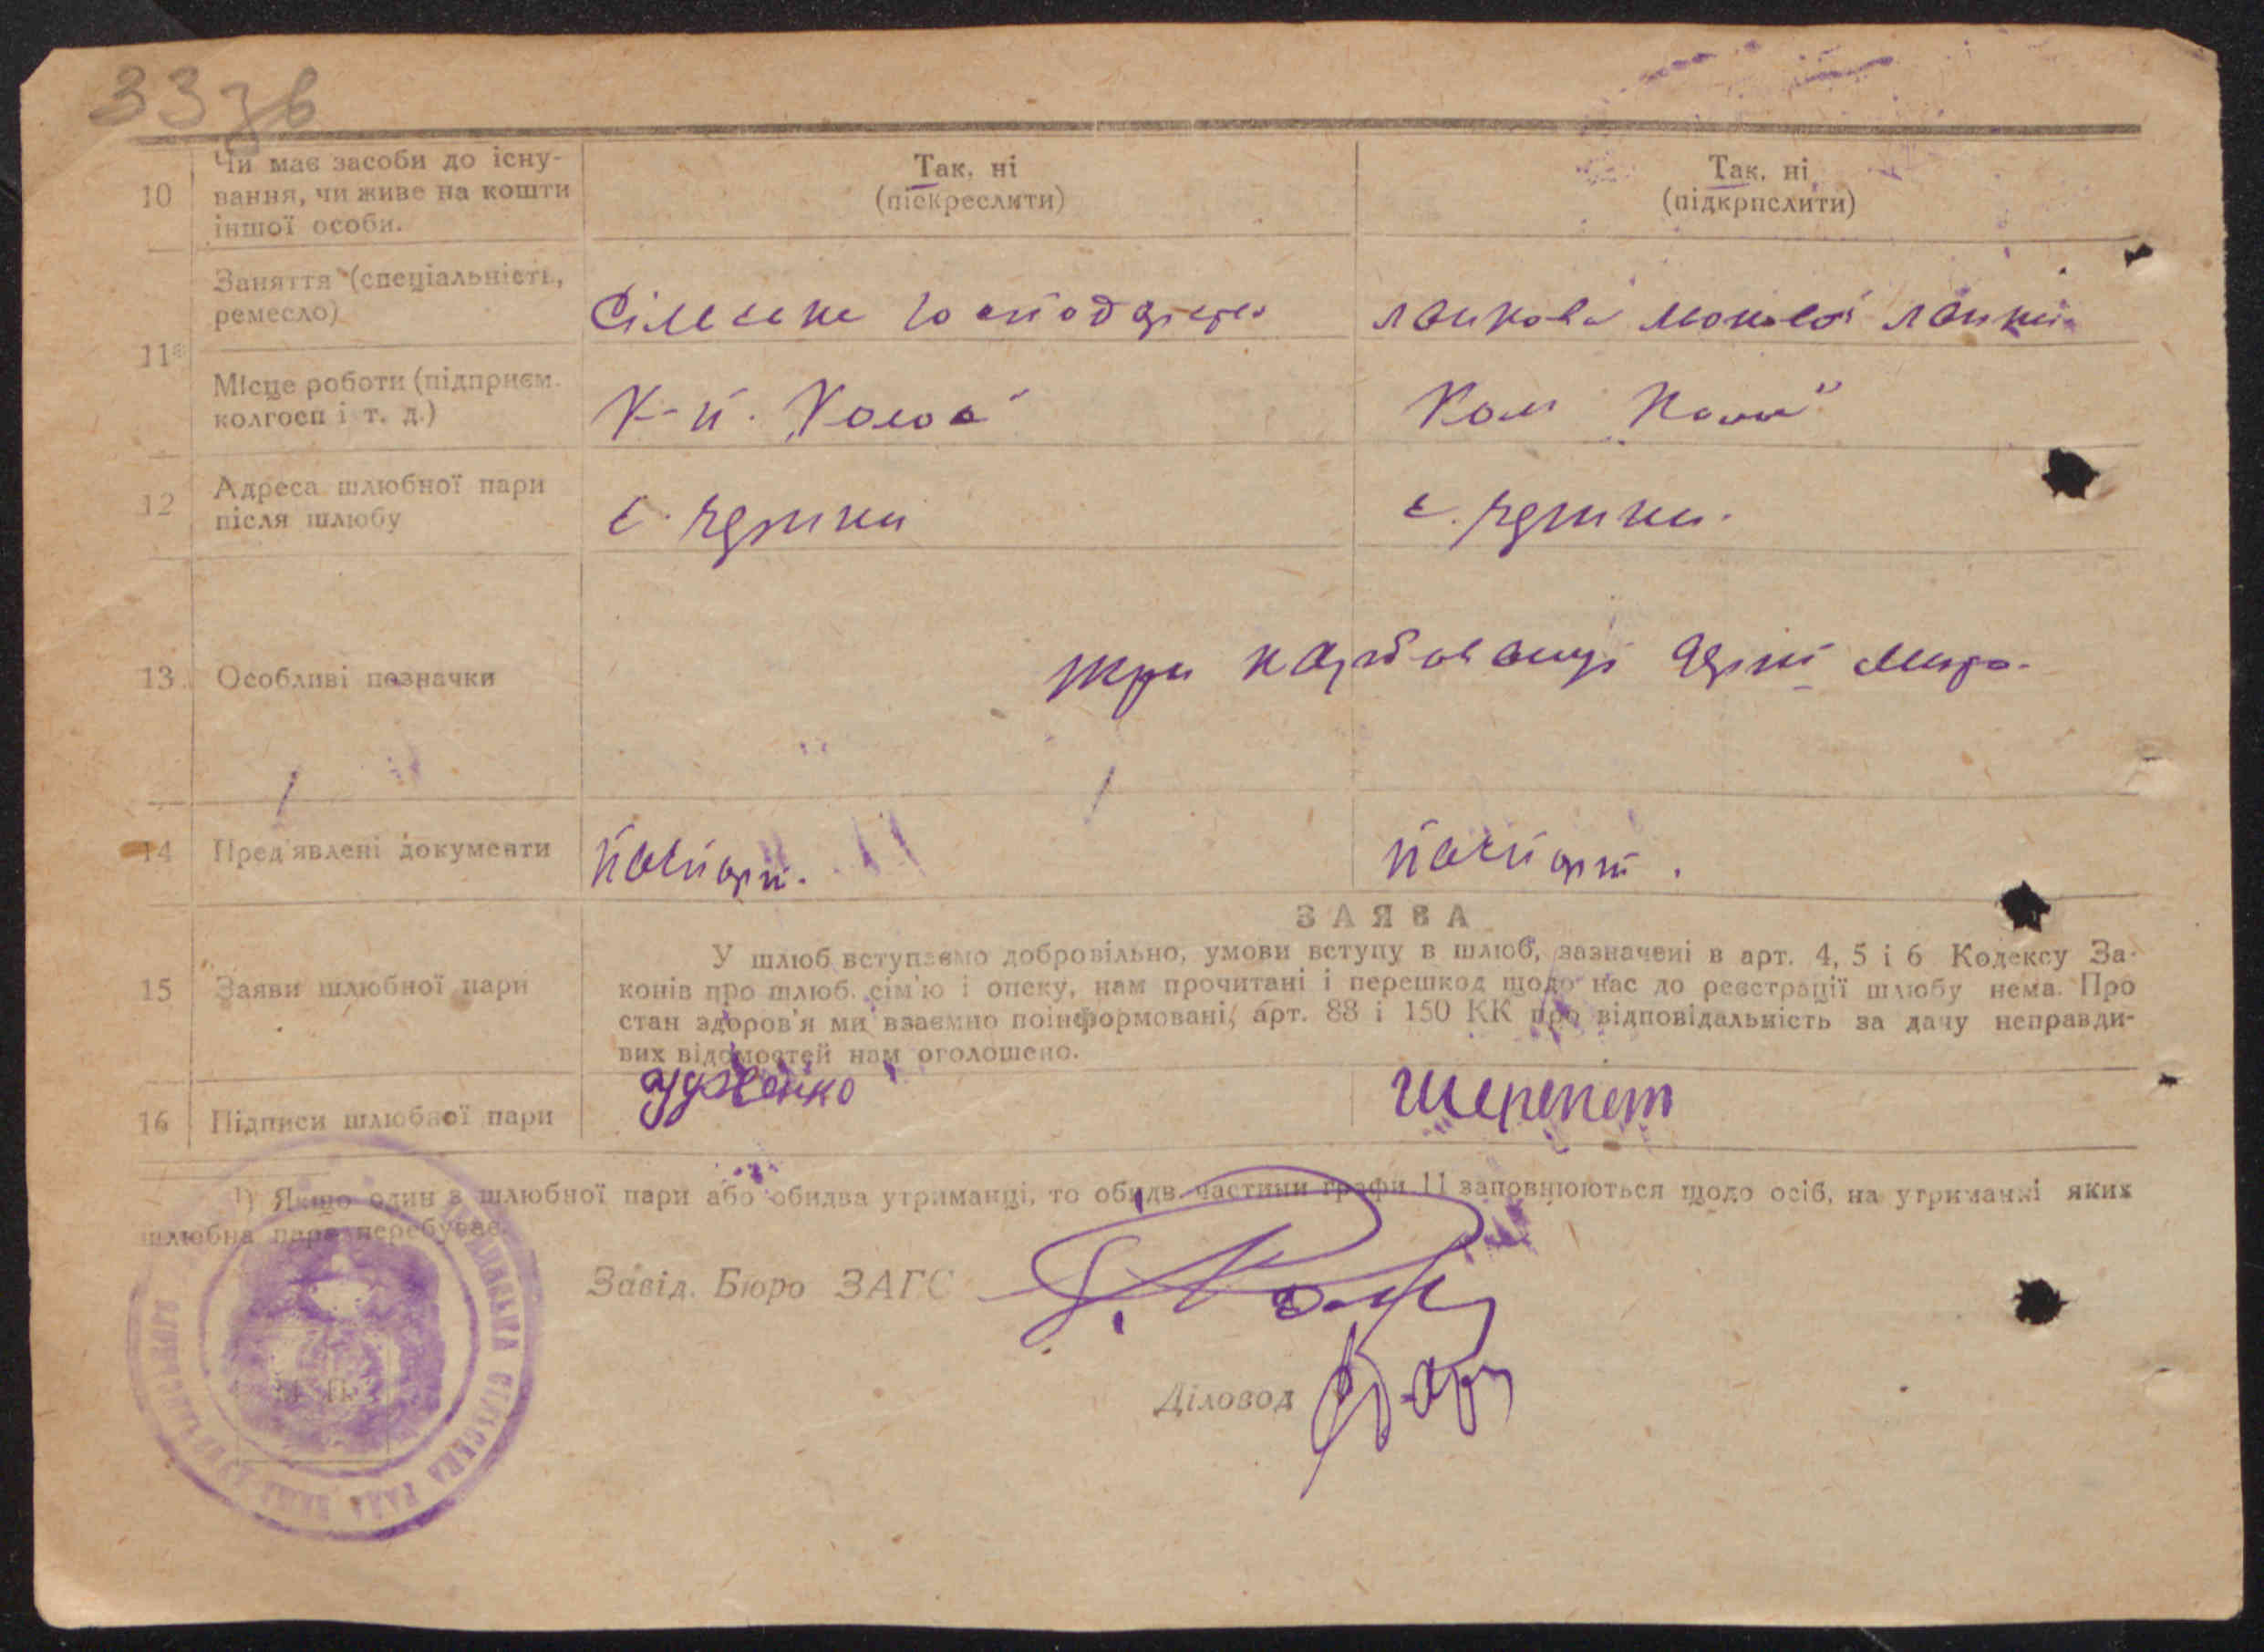 33зв
10 Чи має засоби до існу-
вання, чи живе на кошти
іншої особи.
Так, ні
(піскреслити)
Так, ні
(підкрпслити)
11
Заняття (спеціальність,
ремесло)
Сільське господарство
ланкова ланки
Місце роботи (підприєм.
колгосп і т. д.)
К-п. Колос
12 Адреса шлюбної пари
після шлюбу
с.
с.
13. Особливі позначки
три карбованці
14 Пред'явлені документи
паспорт.
паспорт.
ЗАЯВА
15 Заяви шлюбної пари
У шлюб вступаємо добровільно, умови вступу в шлюб, зазначені в арт. 4, 5 і 6 Кодексу За-
конів про шлюб. сім'ю і опеку, нам прочитані і перешкод щодо нас до реєстрації шлюбу нема. Про
стан здоров'я ми взаємно поінформовані, арт. 88 і 150 КК про відповідальність за дачу неправди-
вих відомостей нам оголошено.
16 Підписи шлюбної пари
Шерепет
1) Якщо один з шлюбної пари або обидва утриманці, то обидв. частини графи 11 заповнюються щодо осіб, на утриманні яких
шлюбна пара перебуває.
Завід. Бюро ЗАГС
Діловод
М. П.
СІЛЬСЬКА РАДА